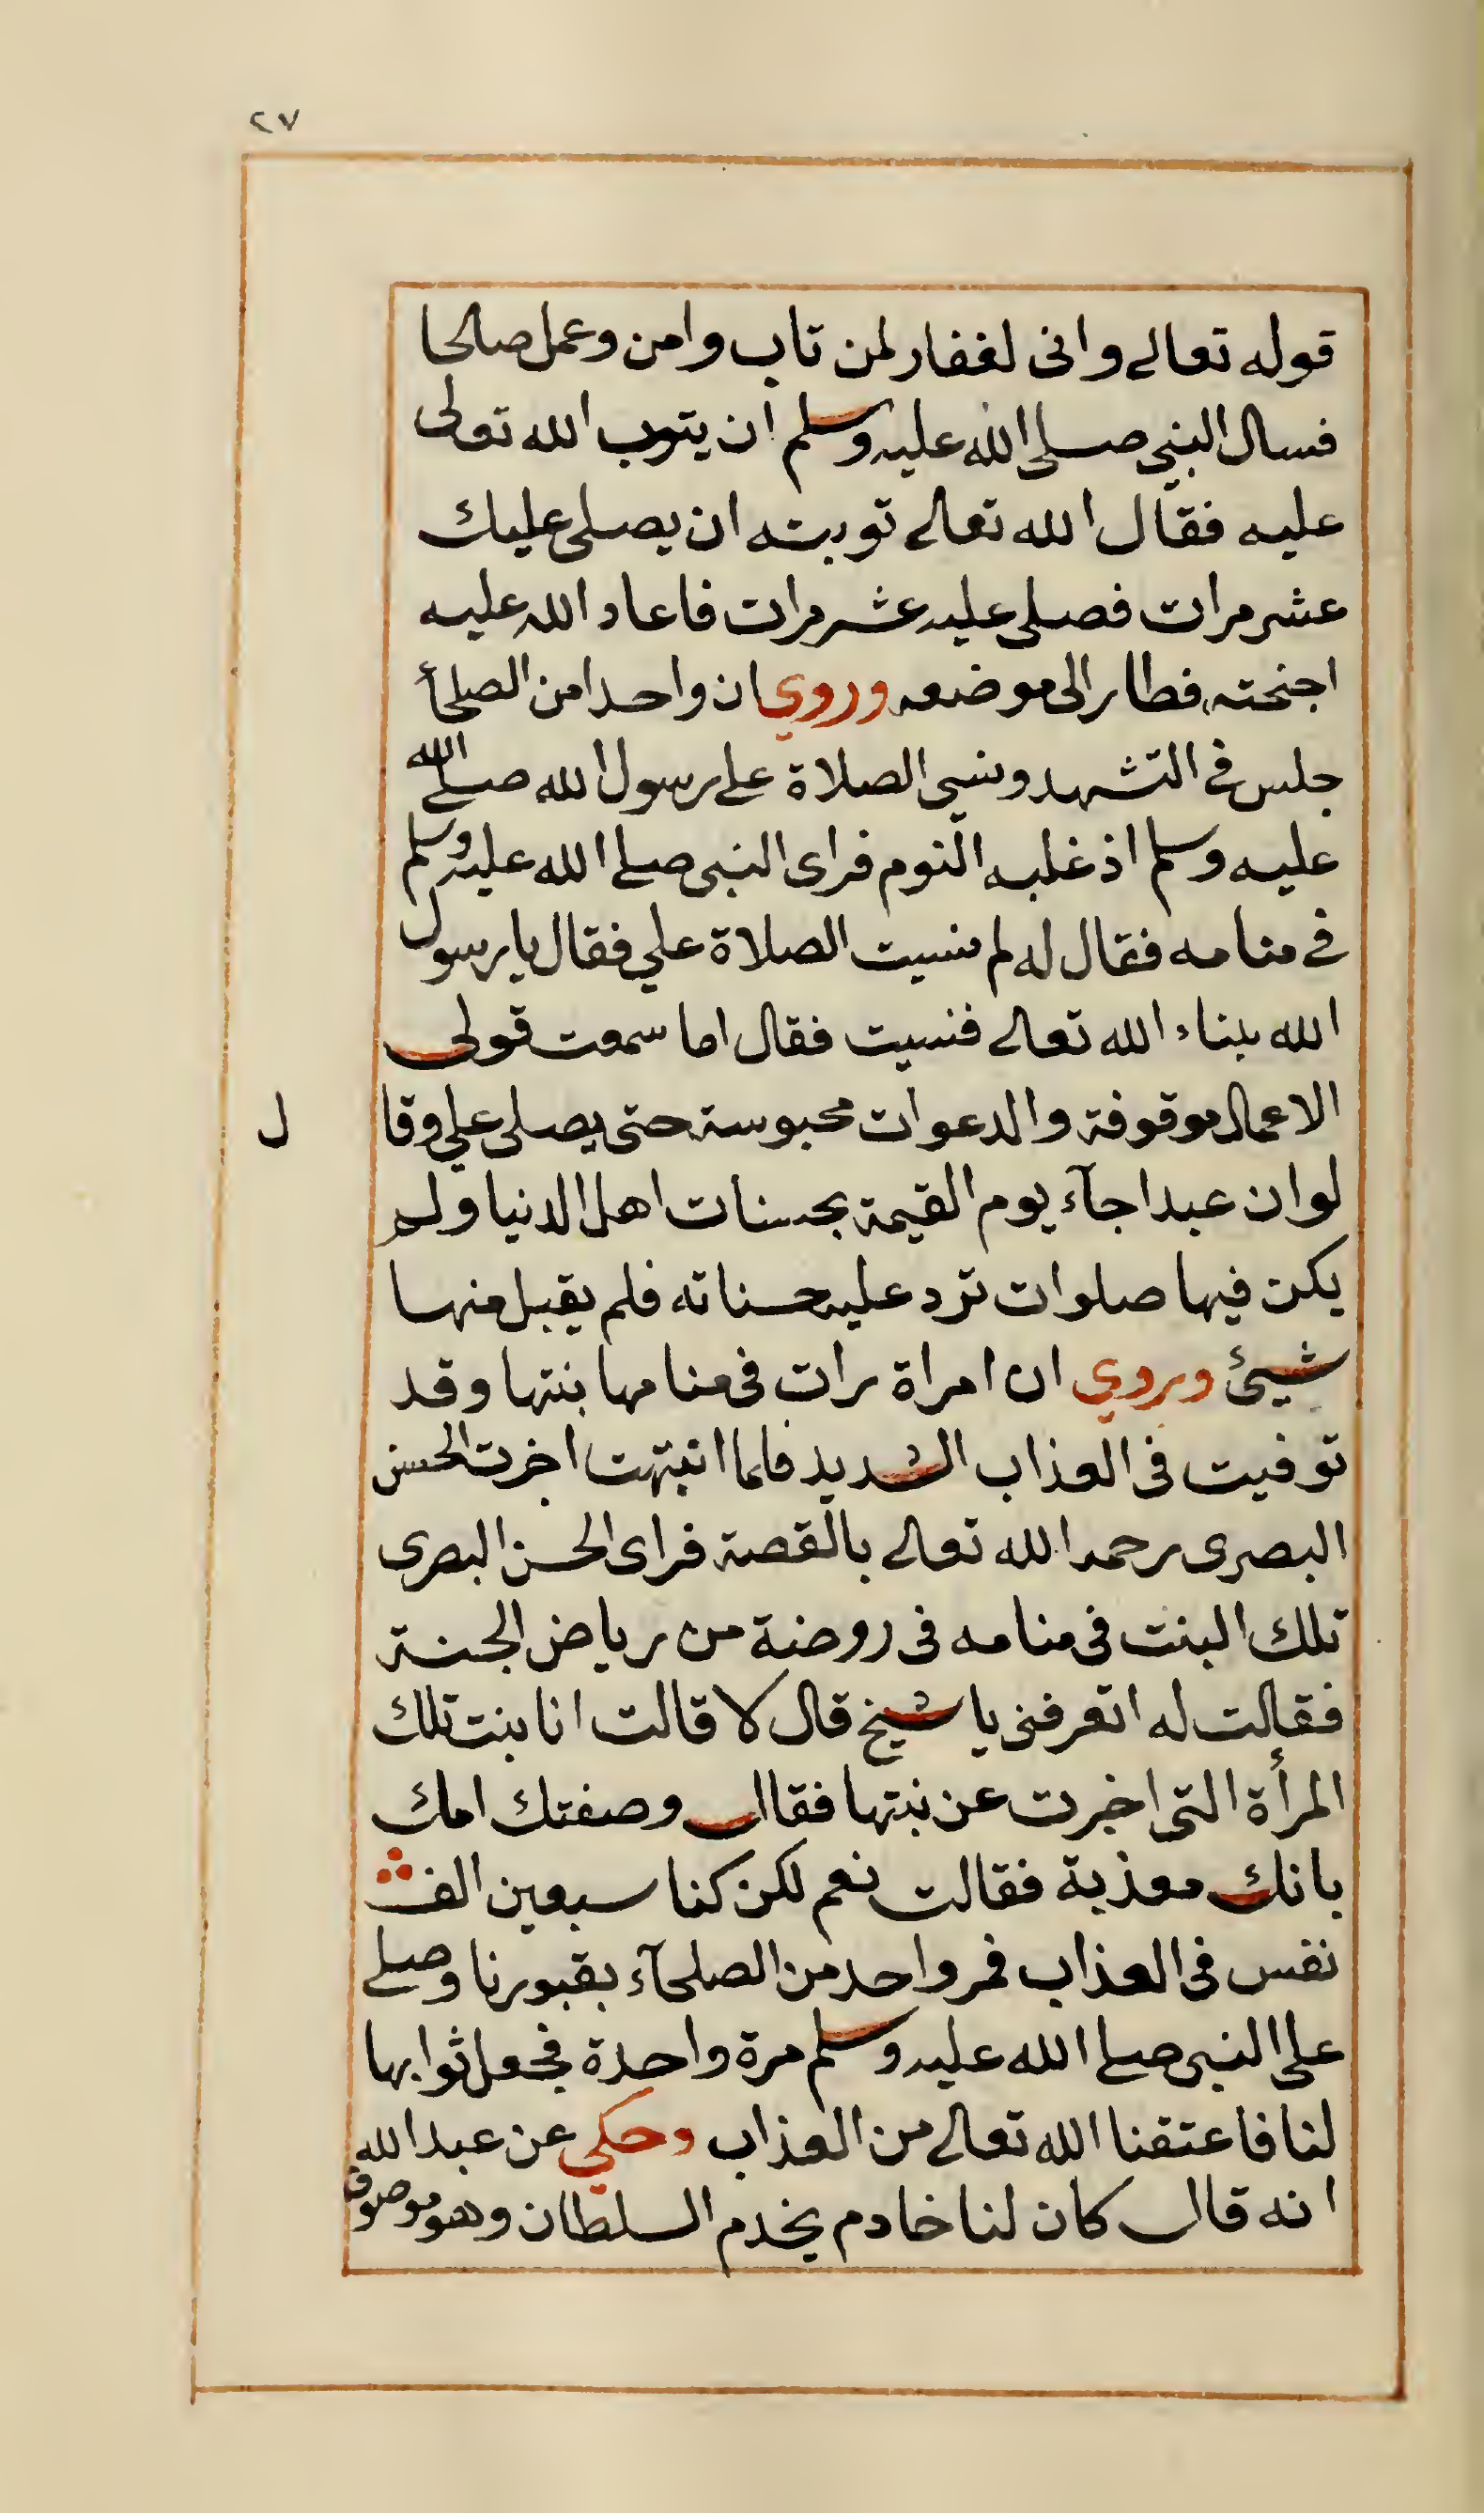 ٢٧
قوله تعالى وانى لغفار لمن تاب وامن وعمل صالحا
فسال النبي صلى الله عليه وسلم ان يتوب الله تعالى
عليه فقال الله تعالى توبته ان يصلى عليك
عشر مرات فصلى عليه عشر مرات فاعاد الله عليه
اجنحته فطار الى موضعه وروي ان واحدا من الصلحأ
جلس فى التشهد ونسي الصلاة على رسول الله صلى الله
عليه وسلم اذ غلبه النوم فراى النبى صلى الله عليه وسلم
فى منامه فقال له لم نسيت الصلاة علي فقال يا رسول
الله بثناء الله تعالى فنسيت فقال اما سمعت قولى
الاعمال موقوفة والدعوات محبوسة حتى يصلى علي وقا ل
لو ان عبدا جآء يوم القيمة بحسنات اهل الدنيا ولم
يكن فيها صلوات ترد عليه حسناته فلم يقبل منها
شيئ وروي ان امراة رات فى منامها بنتها وقد
توفيت فى العذاب الشديد فلما انتبهت اخبرت الحسن
البصرى رحمه الله تعالى بالقصة فراى الحسن البصرى
تلك البنت فى منامه فى روضة من رياض الجنة
فقالت له اتعرفنى يا شيخ قال لا قالت انا بنت تلك
المرأة التى اخبرت عن بنتها فقال وصفتك امك
بانك معذبة فقالت نعم لكن كنا سبعين الف
نفس فى العذاب فمر واحد من الصلحآء بقبورنا وصلى
على النبى صلى الله عليه وسلم مرة واحدة فجعل ثوابها
لنا فاعتقنا الله تعالى من العذاب وحكي عن عبد الله
انه قال كان لنا خادم يخدم السلطان وهو موصوف